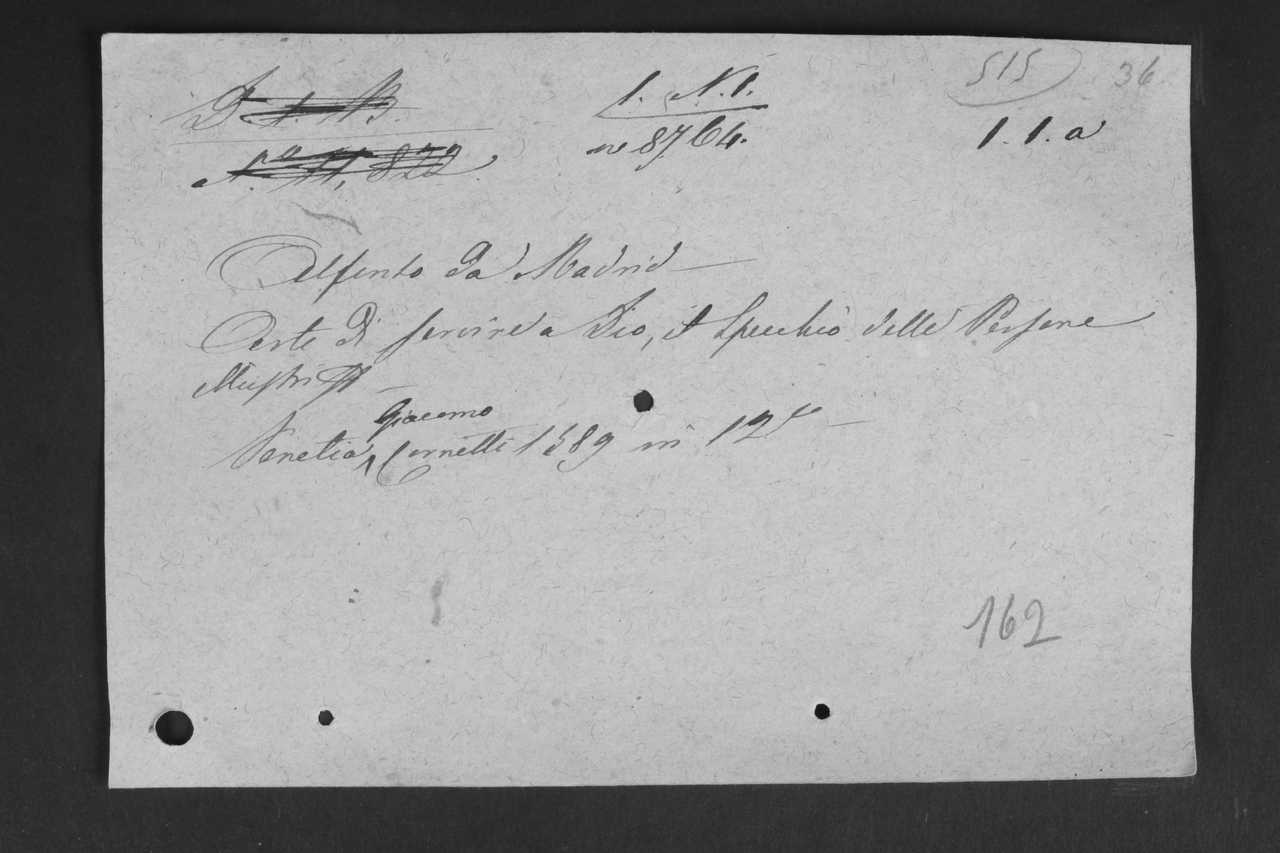 515 36
D. t. B. 1. N. 1.
N.º 11,822 nº 8764. 1. 1. a
Alfonso da Madrid
Arte di servire a Dio, it Specchio delle Persone
Illustri
Giacomo
Venetia, Cornetti 1589 in 12º
162